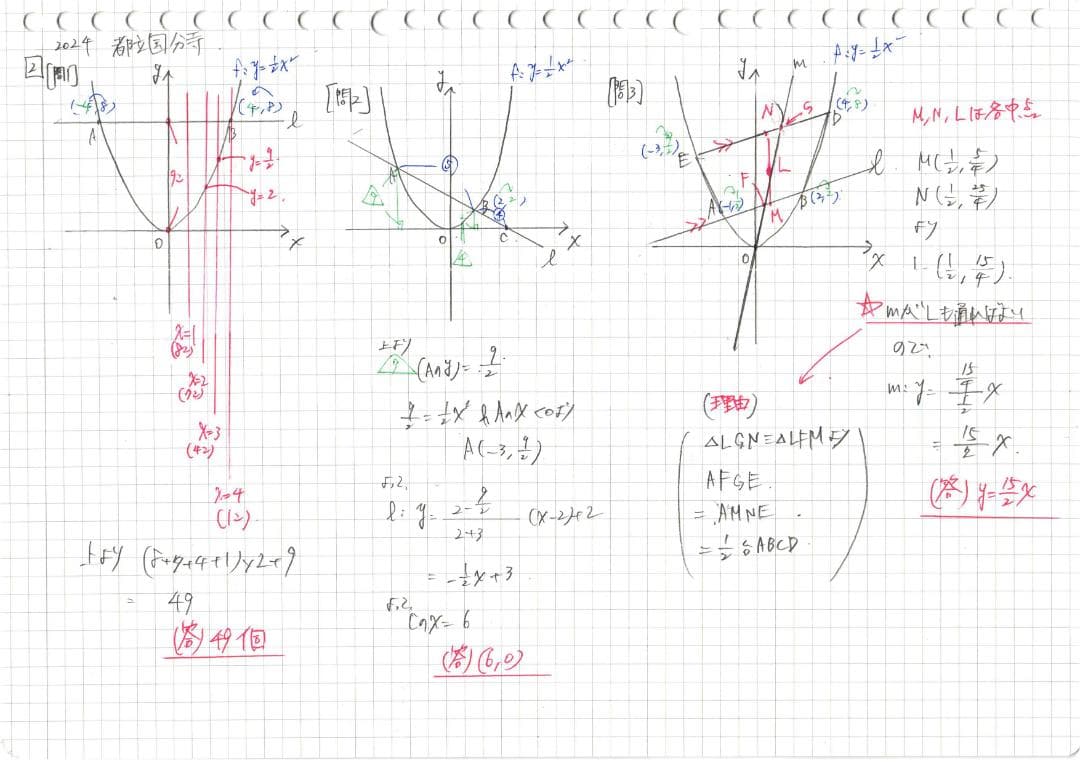 2024 都立国分寺
2 [問1]
y
f: y=1/2x²
(-4, 8)
(4, 8)
A
B
l
y=9/2
y=2
9コ
O
x
x=1
(8コ)
x=2
(7コ)
x=3
(4コ)
x=4
(1コ)
上より (8+7+4+1)×2+9
= 49
(答) 49個
[問2]
y
f: y=1/2x²
A
⑨
B
(2, 2)
④
9
4
O
C
x
l
上より
9 (Aのy)=9/2
9/2=1/2x² & Aのx<0より
A(-3, 9/2)
よって
l: y= (2-9/2)/(2+3) (x-2)+2
= -1/2x+3
よって
Cのx=6
(答) (6, 0)
[問3]
y
m
f: y=1/2x²
N
G
(4, 8)
D
(-3, 9/2)
E
L
l
F
A(-1, 1/2)
B(2, 2)
M
O
x
M, N, Lは各中点
M(1/2, 5/4)
N(1/2, 25/4)
より
L(1/2, 15/4).
☆ mがLを通ればよい
ので
m: y= (15/4)/(1/2) x
= 15/2 x.
(答) y=15/2x
(理由)
△LGN≡△LFMより
AFGE
=AMNE